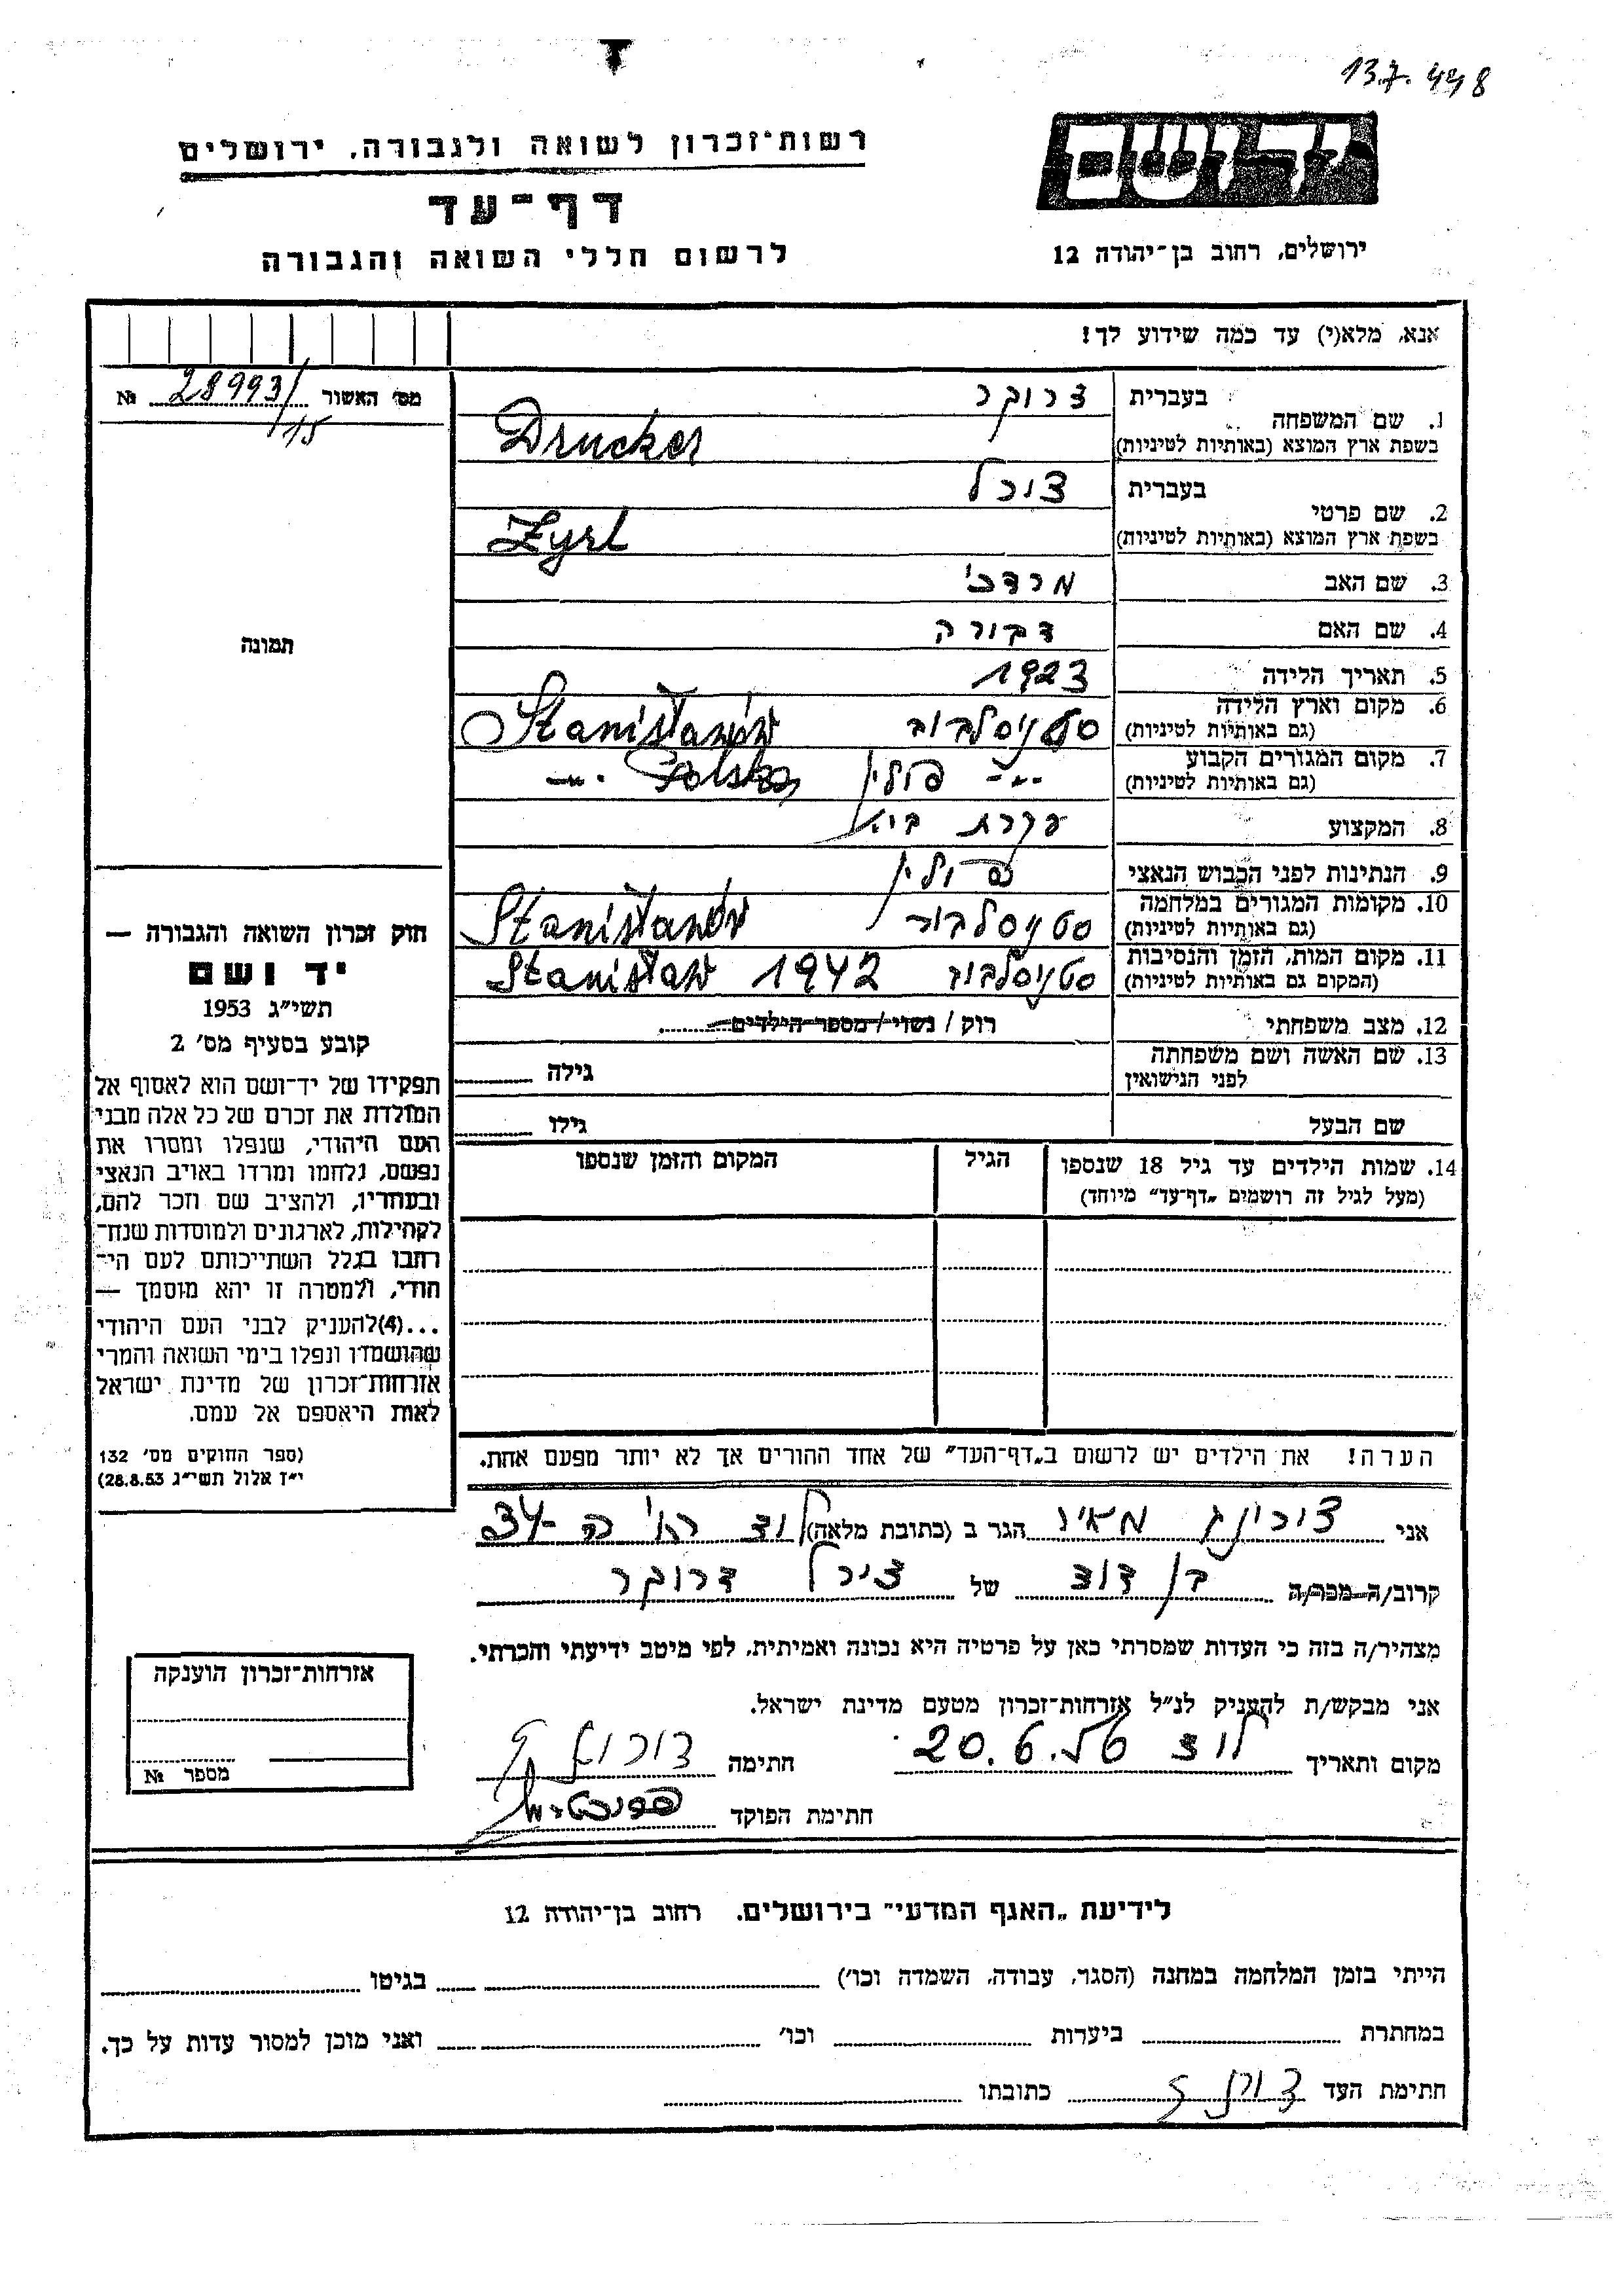 13.7.448
יד ושם
ירושלים, רחוב בן־יהודה 12
רשות־זכרון לשואה ולגבורה, ירושלים
דף־עד
לרשום חללי השואה והגבורה
אנא, מלא(י) עד כמה שידוע לך!
מס' האשור 28993/15 №
1. שם המשפחה
בעברית דרוקר
בשפת ארץ המוצא (באותיות לטיניות) Drucker
2. שם פרטי
בעברית צירל
בשפת ארץ המוצא (באותיות לטיניות) Zyrl
3. שם האב מרדכי
4. שם האם דבורה
5. תאריך הלידה 1923
6. מקום וארץ הלידה
(גם באותיות לטיניות) סטניסלבוב Stanisławów
7. מקום המגורים הקבוע
(גם באותיות לטיניות) -"- פולין Polska -"-
8. המקצוע עקרת בית
9. הנתינות לפני הכבוש הנאצי פולין
10. מקומות המגורים במלחמה
(גם באותיות לטיניות) סטניסלבוב Stanisławów
11. מקום המות, הזמן והנסיבות
(המקום גם באותיות לטיניות) סטניסלבוב 1942 Stanisław
12. מצב משפחתי רוק / נשוי / מספר הילדים
13. שם האשה ושם משפחתה
לפני הנישואין
גילה
שם הבעל גילו
14. שמות הילדים עד גיל 18 שנספו
(מעל לגיל זה רושמים „דף־עד" מיוחד)
הגיל
המקום והזמן שנספו
הערה! את הילדים יש לרשום ב„דף־העד" של אחד ההורים אך לא יותר מפעם אחת.
תמונה
חוק זכרון השואה והגבורה —
יד ושם
תשי"ג 1953
קובע בסעיף מס' 2
תפקידו של יד־ושם הוא לאסוף אל
המולדת את זכרם של כל אלה מבני
העם היהודי, שנפלו ומסרו את
נפשם, נלחמו ומרדו באויב הנאצי
ובעוזריו, ולהציב שם וזכר להם,
לקהילות, לארגונים ולמוסדות שנח־
רבו בגלל השתייכותם לעם הי־
הודי, ולמטרה זו יהא מוסמך —
...(4)להעניק לבני העם היהודי
שהושמדו ונפלו בימי השואה והמרי
אזרחות־זכרון של מדינת ישראל
לאות היאספם אל עמם.
(ספר החוקים מס' 132
י"ז אלול תשי"ג 28.8.53)
אני מאיר הגר ב (כתובת מלאה) לוד 34
קרוב/ה מכר/ה בן דוד של צירל דרוקר
מצהיר/ה בזה כי העדות שמסרתי כאן על פרטיה היא נכונה ואמיתית, לפי מיטב ידיעתי והכרתי.
אני מבקש/ת להעניק לנ"ל אזרחות־זכרון מטעם מדינת ישראל.
מקום ותאריך לוד 20.6.56 חתימה
חתימת הפוקד
אזרחות־זכרון הוענקה
מספר №
לידיעת „האגף המדעי" בירושלים, רחוב בן־יהודה 12
הייתי בזמן המלחמה במחנה (הסגר, עבודה, השמדה וכו') בגיטו
במחתרת ביערות וכו' ואני מוכן למסור עדות על כך.
חתימת העד כתובתו